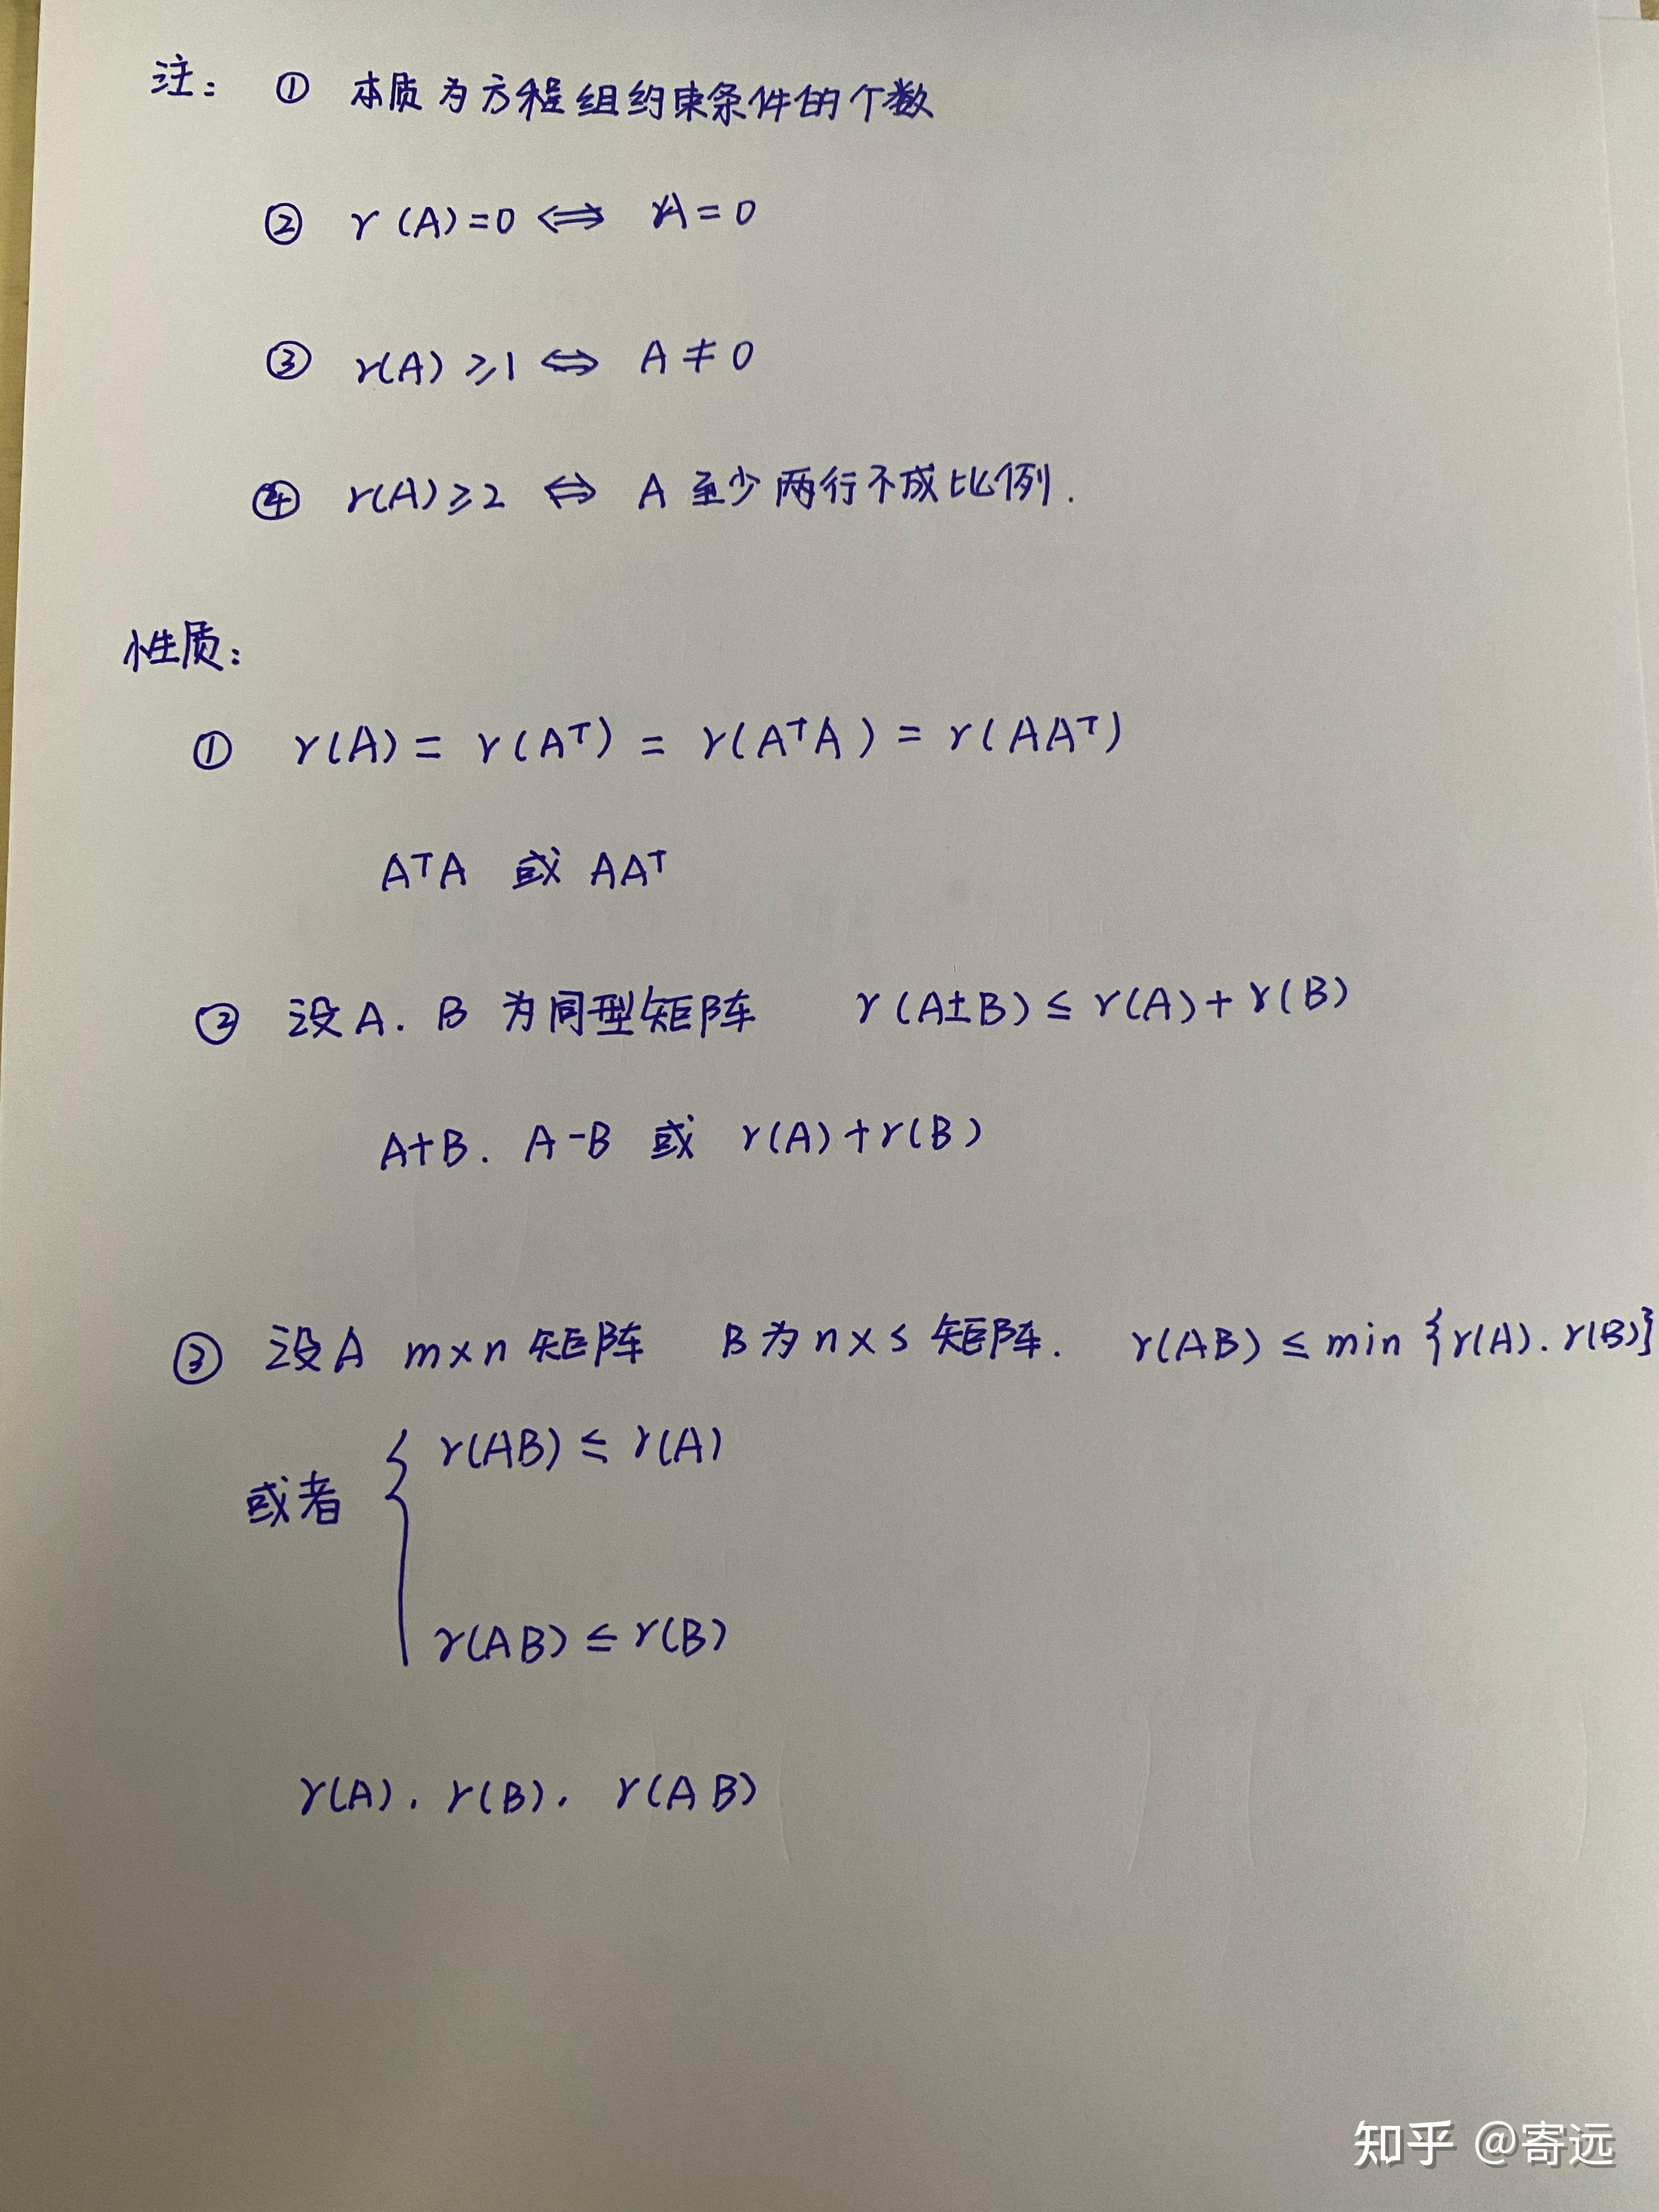 注： ① 本质为方程组约束条件的个数
② r(A)=0 ⇔ A=0
③ r(A)≥1 ⇔ A≠0
④ r(A)≥2 ⇔ A 至少两行不成比例.
性质：
① r(A) = r(Aᵀ) = r(AᵀA) = r(AAᵀ)
AᵀA 或 AAᵀ
② 设A. B 为同型矩阵 r(A±B) ≤ r(A)+r(B)
A+B. A-B 或 r(A)+r(B)
③ 设A m×n 矩阵 B 为 n×s 矩阵. r(AB) ≤ min {r(A). r(B)}
r(AB) ≤ r(A)
或者 {
r(AB) ≤ r(B)
r(A). r(B). r(AB)
知乎 @寄远